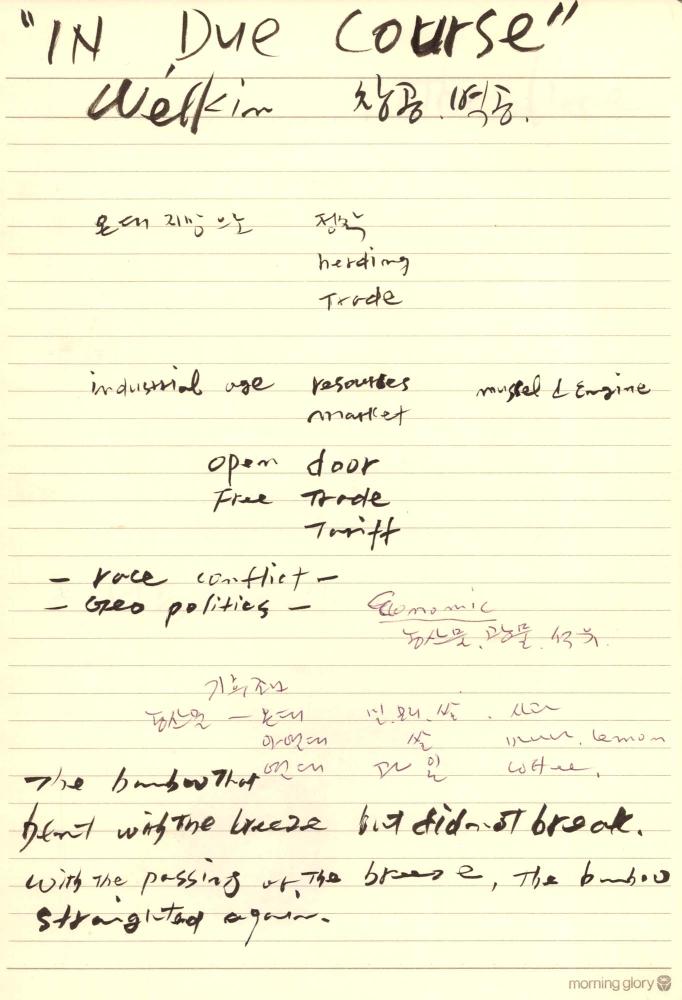 "IN Due Course"
Welkin 창공. 벽공.
온대 지방 으로 정착
herding
Trade
industrial age resources mussel & Engine
market
open door
Free Trade
Tariff
- race conflict -
- Geo politics -
Economic
농산물, 광물, 석유.
기후 조건
농산물 - 온대 밀, 보리, 쌀.
아열대 쌀 lemon
열대 과일 coffee,
The bamboo That
bent with The breeze but did not break.
With The passing of The breeze, The bamboo
straighted again.
morning glory